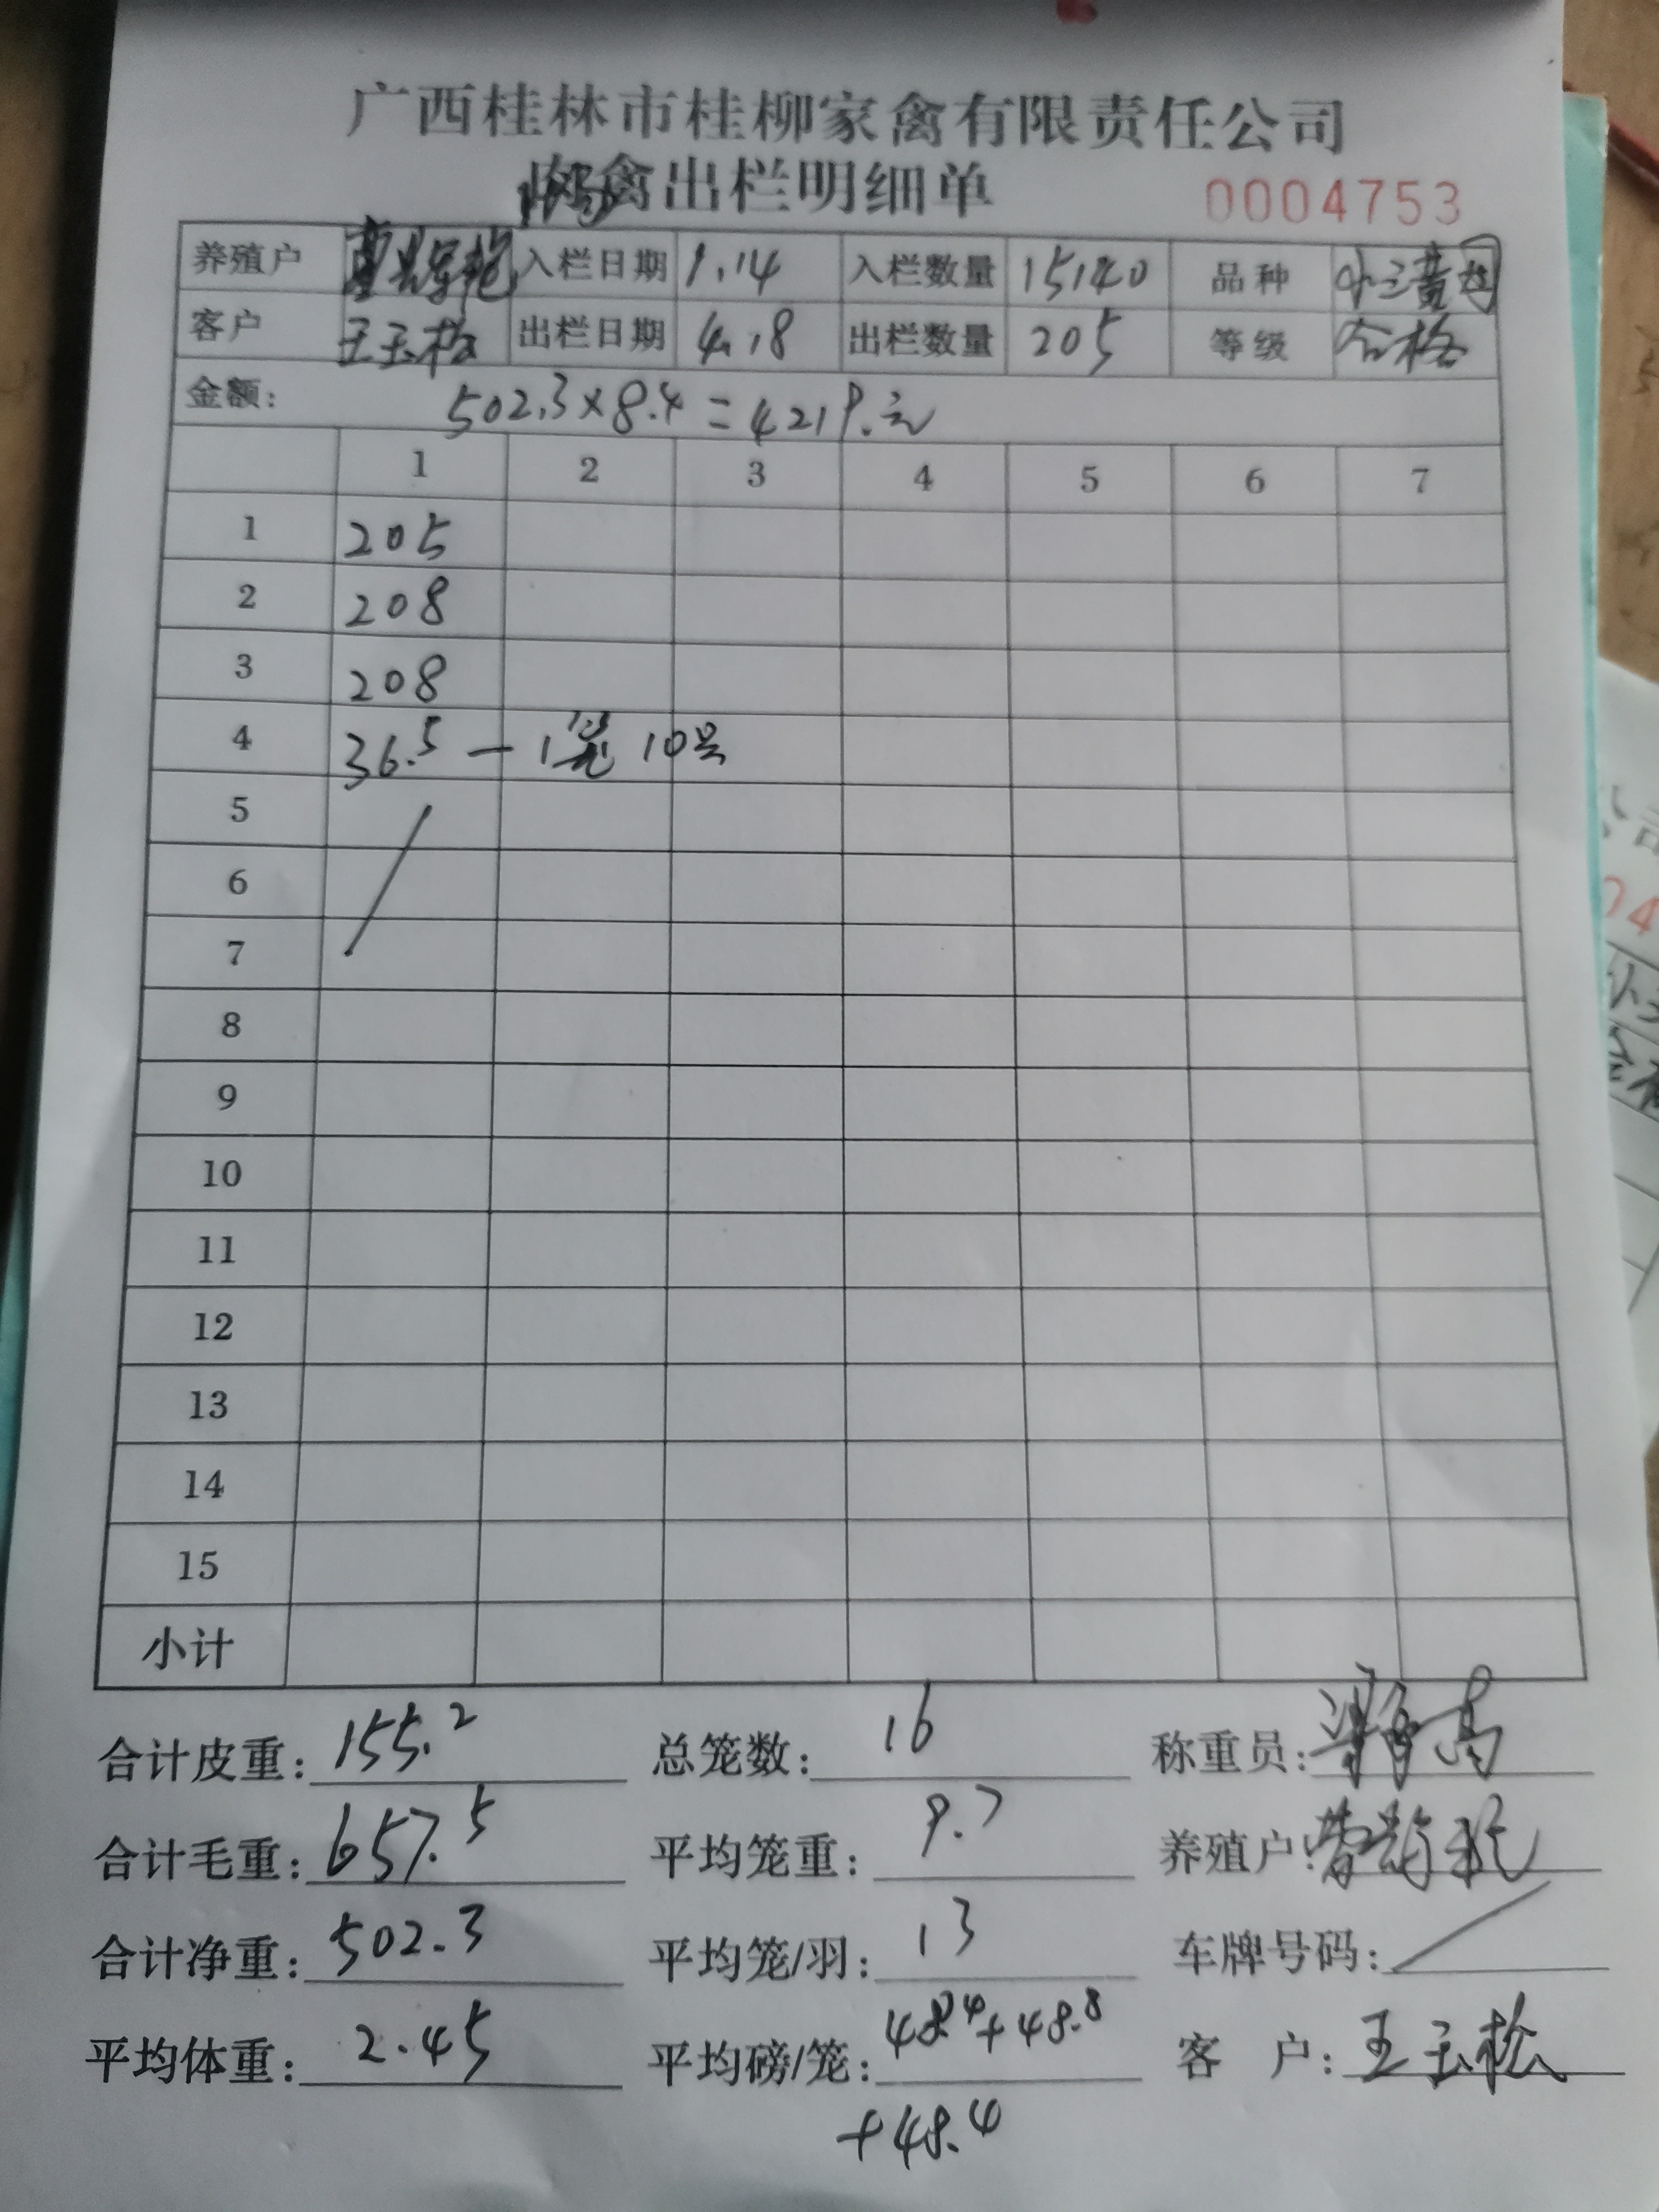 广西桂林市桂柳家禽有限责任公司
肉禽出栏明细单 0004753
养殖户 入栏日期 1.14 入栏数量 15140 品种 小三黄
客户 王玉松 出栏日期 4.18 出栏数量 205 等级 合格
金额: 502.3×8.4=4219.元
1 2 3 4 5 6 7
1 205
2 208
3 208
4 36.5 — 1笼 10号
5
6
7
8
9
10
11
12
13
14
15
小计
合计皮重: 155.2 总笼数: 16 称重员:
合计毛重: 657.5 平均笼重: 9.7 养殖户:
合计净重: 502.3 平均笼/羽: 13 车牌号码: /
平均体重: 2.45 平均磅/笼: 48.4+48.8 客 户: 王玉松
+48.4
公司
04